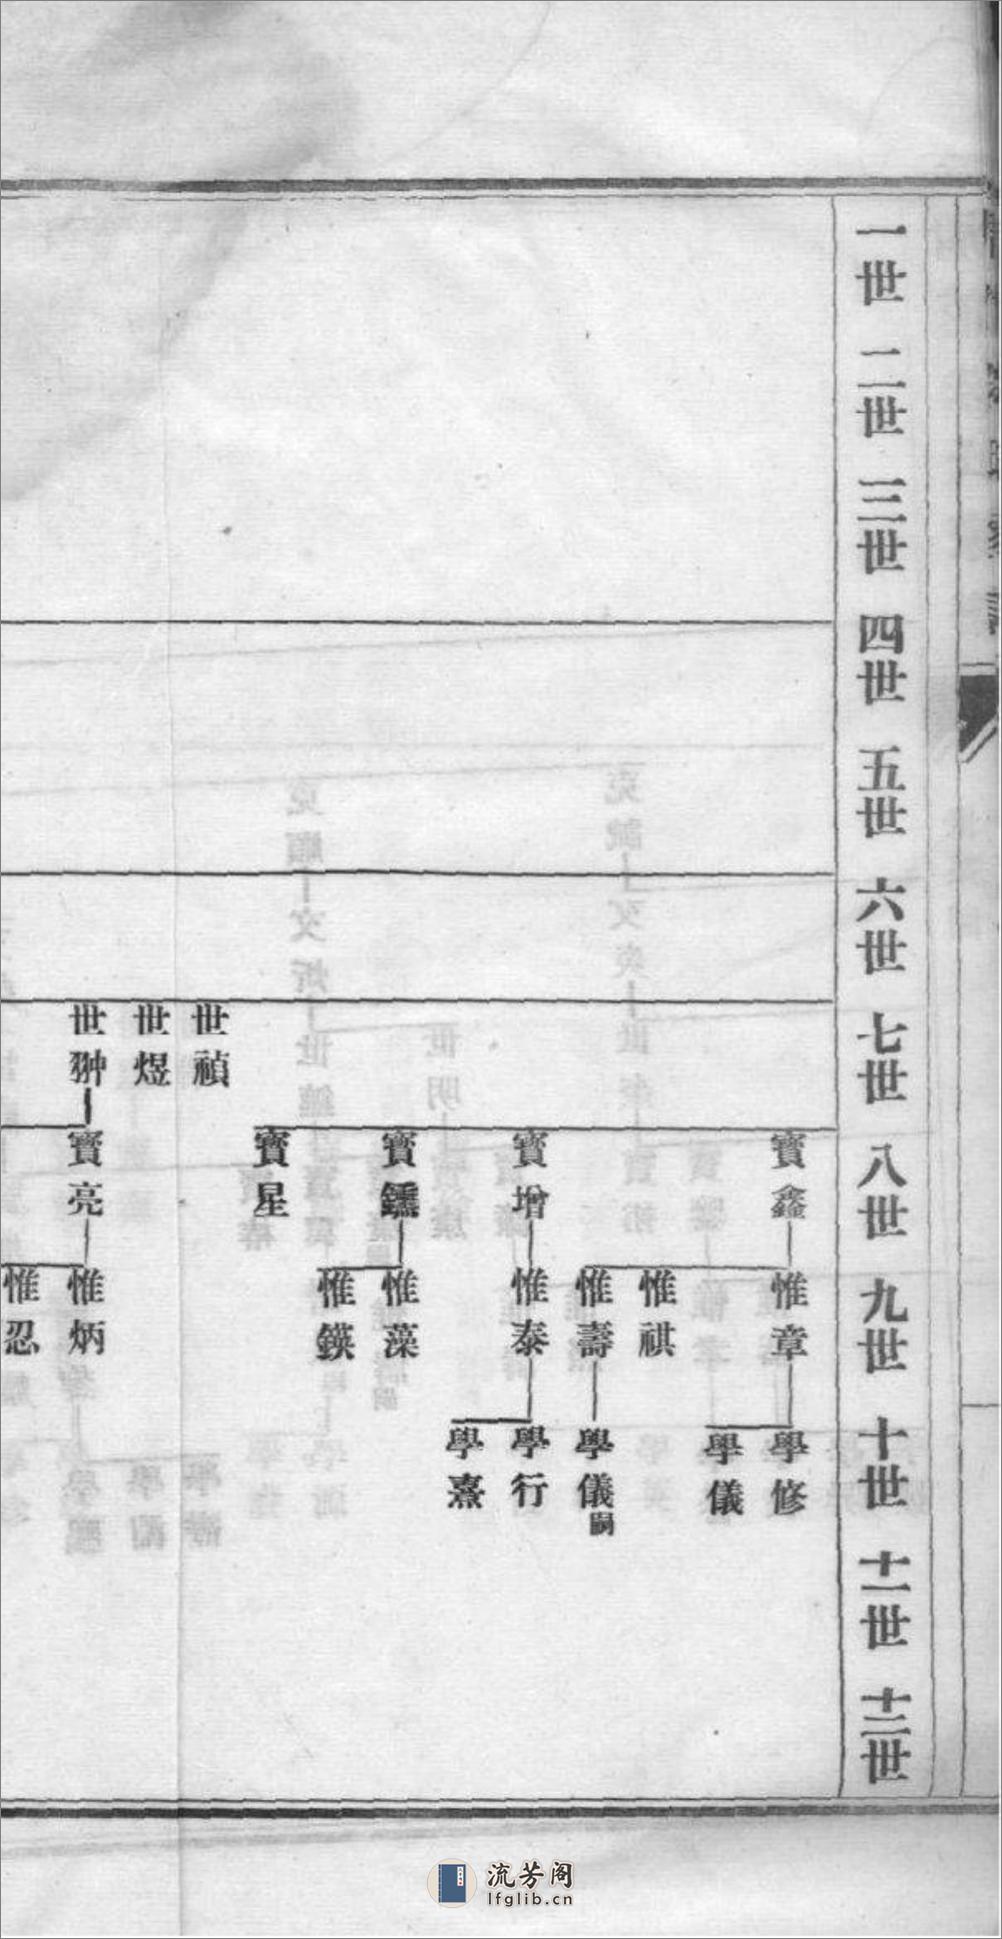 一世
二世
三世
四世
五世
六世
七世
八世
九世
十世
十一世
十二世
寶鑫
惟章
學修
學儀
惟祺
惟壽
學儀嗣
寶增
惟泰
學行
學熹
寶鑂
惟藻
惟鍈
寶星
世禎
世煜
世翀
寶亮
惟炳
惟忍
流芳阁
lfglib.cn